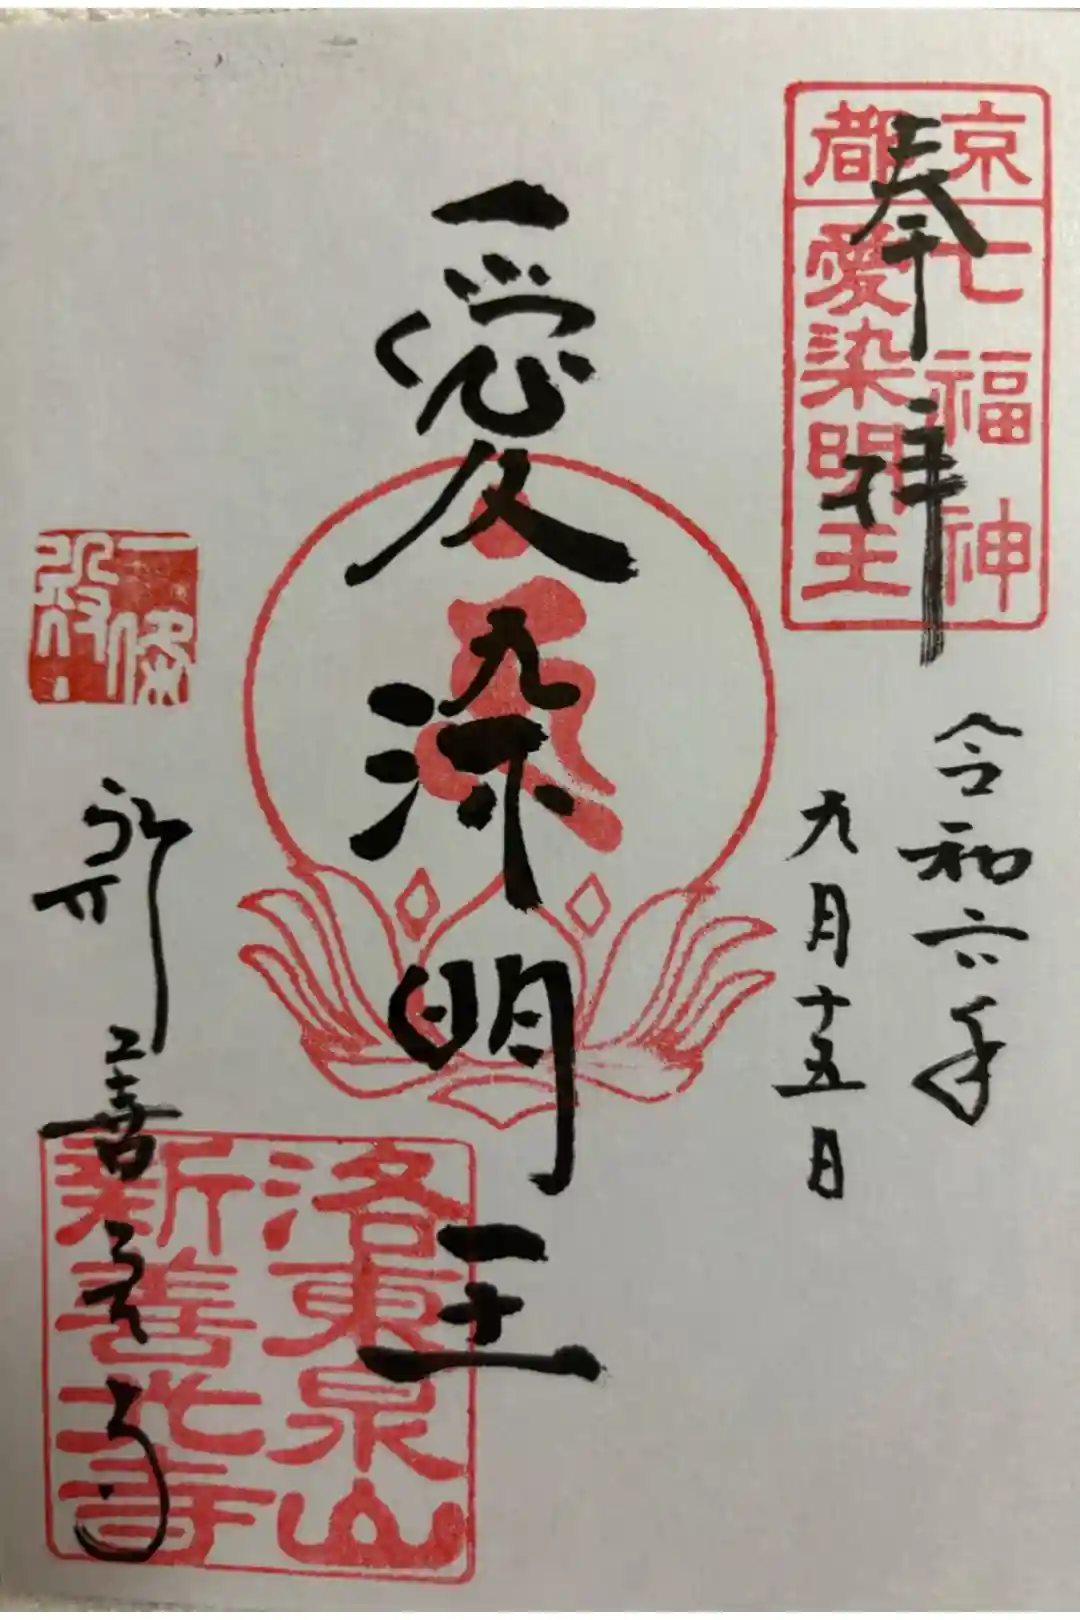 奉拝
京都
七福神
愛染明王
令和六年
九月十五日
愛染明王
新善光寺
洛東泉山
新善光寺